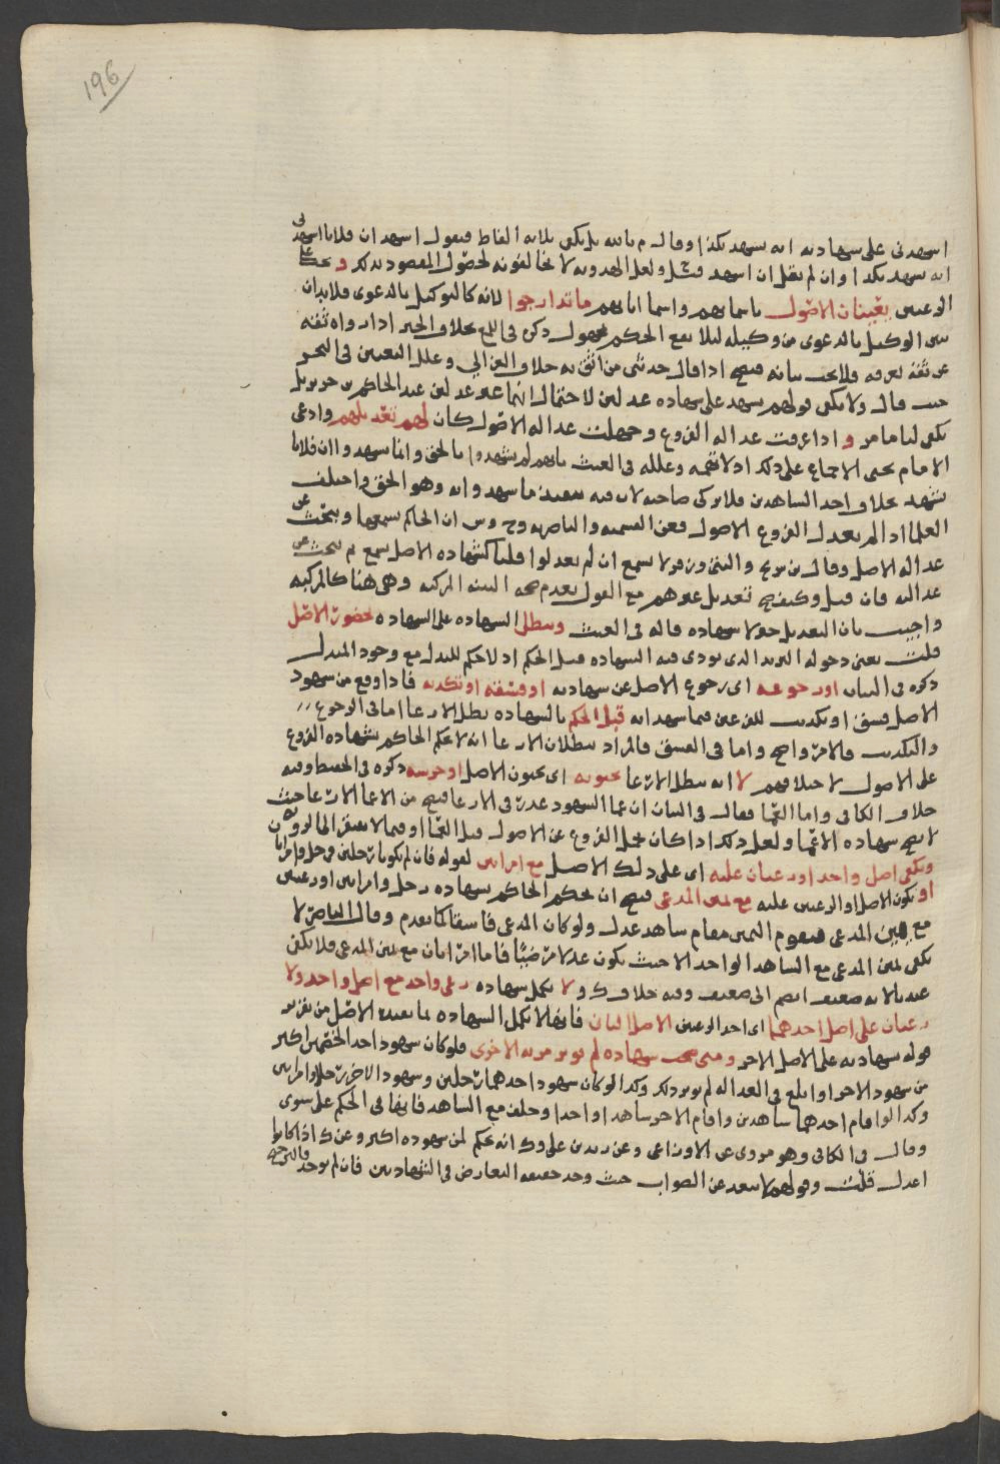 196
اشهدني على شهادته انه يشهد بكذا وقال م بالله بل يكفي ثلاثة الفاظ فيقول اشهد ان فلانا اشهدني
انه يشهد بكذا وان لم يقل ان اشهد قيل ولعل الهدويه لا يخالفونه لحصول المقصود بذلك و يجب على
الرعيين تعيينان الاصول باسمائهم واسما ابائهم ما تدارجوا لانه كالتوكيل بالدعوى فلا بد ان
يبين الوكيل بالدعوى من وكيله لئلا يقع الحكم لمجهول ذكره في اللمع بخلاف الخبر اذا رواه ثقة
عن ثقة لم فلا يجب بيانه فيصح اذا قال حدثني من اثق به خلاف الغزالي وعلل التعيين في البحر
حيث قال ولا يكفي قولهم نشهد على شهادة عدلين لاحتمال انهما غير عدلين عند الحاكم بن جرير بل
يكفي لنا ما مر و اذا عرفت عدالة الفروع وجهلت عدالة الاصول كان لهم تعديلهم وادعى
الامام يحيى الاجماع على ذلك اذ لا تهمة وعلله في الغيث بانهم لم يشهدوا بالحق وانما شهدوا ان فلانا
يشهد بخلاف احد الشاهدين فلا يزكي صاحبه لانه فيه تنفيذ ما شهد وانه وهو الحق واختلف
العلما اذا لم يعدل الفروع الاصول فعن القسميه والناصريه وح وش ان الحاكم يسمعها ويبحث عن
عدالة الاصل وقال بن سريج والثوري وزفر لا تسمع ان لم يعدلوا قلنا كشهادة الاصل تسمع ثم يبحث عن
عدالته فان قيل وكيف يصح تعديل غيرهم مع القول بعدم صحة البينة المركبة وهي هنا كالمركبة
واجيب بان التعديل خبر لا شهادة قاله في الغيث وتبطل الشهادة على الشهادة بحضور الاصل
قلت يعني دخوله البريد الذي تودى فيه الشهادة قبل الحكم اذ لا حكم للبدل مع وجود المبدل
ذكره في البيان او رجوعه اي رجوع الاصل عن شهادته او فسقه او تكذيبه فاذا وقع من شهود
الاصل فسق او تكذيب للفرعين فيما شهدا به قبل الحكم بالشهادة بطل الارعا اما في الرجوع
والتكذيب فالامر واضح واما في الفسق فالمراد ببطلان الارعا انه لا يحكم الحاكم بشهادة الفروع
على الاصول لاختلافهم لا انه يبطل الارعا بجنونه اي بجنون الاصل او خرسه ذكره في الحفيظ وفيه
خلاف الكافي واما العما فقال في البيان ان عما الشهود عذر في الارعا فيصح من الاعما الارعا حيث
لا تصح شهادة الاعما ولعل ذلك اذا كان تحمل الفروع عن الاصول قبل العما او فيما لا يفتقر الى الرؤيه
ويكفي اصل واحد او رعيان عليه اي على ذلك الاصل مع امراتين لقوله فان لم يكونا رجلين فرجل وامراتان
او يكون الاصل او الرعيين عليه مع يمين المدعي فيصح ان يحكم الحاكم بشهادة رجل وامراتين او رعيين
مع يمين المدعي فيقوم اليمين مقام شاهد عدل ولو كان المدعي فاسقا كما تقدم وقال الناصر لا
يكفي يمين المدعي مع الشاهد الواحد الا حيث يكون عدلا مرضيا فاما امراتان مع يمين المدعي فلا يكفي
عندنا لانه ضعيف انضم الى ضعيف وفيه خلاف ك و لا يكمل شهادة رعي واحد مع اصل واحد ولا
رعيان على اصل احدهما اي احد الرعيين الاصل الثاني فانها لا تكمل الشهادة بما بعده الاصل من تقرير
قوله شهادته على الاصل الاخر ومتى صحت شهادة لم توثر مزية الاخرى فلو كان شهود احد الخصمين اكثر
من شهود الاخر او ابلغ في العداله لم يوثر ذلك وكذا لو كان شهود احدهما رجلين وشهود الاخر رجلا وامراتين
وكذا لو اقام احدهما شاهدين واقام الاخر شاهدا واحدا وحلف مع الشاهد فانهما في الحكم على سوى
وقال في الكافي وهو مروي عن الاوزاعي وعن زيد بن علي وك انه يحكم لمن شهوده اكثر وعن ك اذا كانوا
اعدل قلت وقولهم لا يبعد عن الصواب حيث وجد حقيقة التعارض في الشهادتين فان لم يوجد فالترجيح